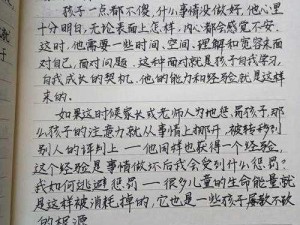 孩子一点都不傻，什么事情没做好，他心里
十分明白，无论表面上怎样，内心都会感觉不安．
这时，他需要一些时间、空间、理解和宽容来面
对自己，面对问题．这种面对就是孩子自我学习，
自我成长的契机，他的能力和经验就是这样
来的．
如果这时候家长或老师人为地惩罚孩子，那
么孩子的注意力就从事情上挪开，被转移到
别人的评判上——他同样也获得一个经验，
这个经验是事情做坏后我会受到什么惩罚？
我如何逃避惩罚——很多儿童的生命能量就
是这样被消耗掉的，它也是一些孩子屡教不改
的根源